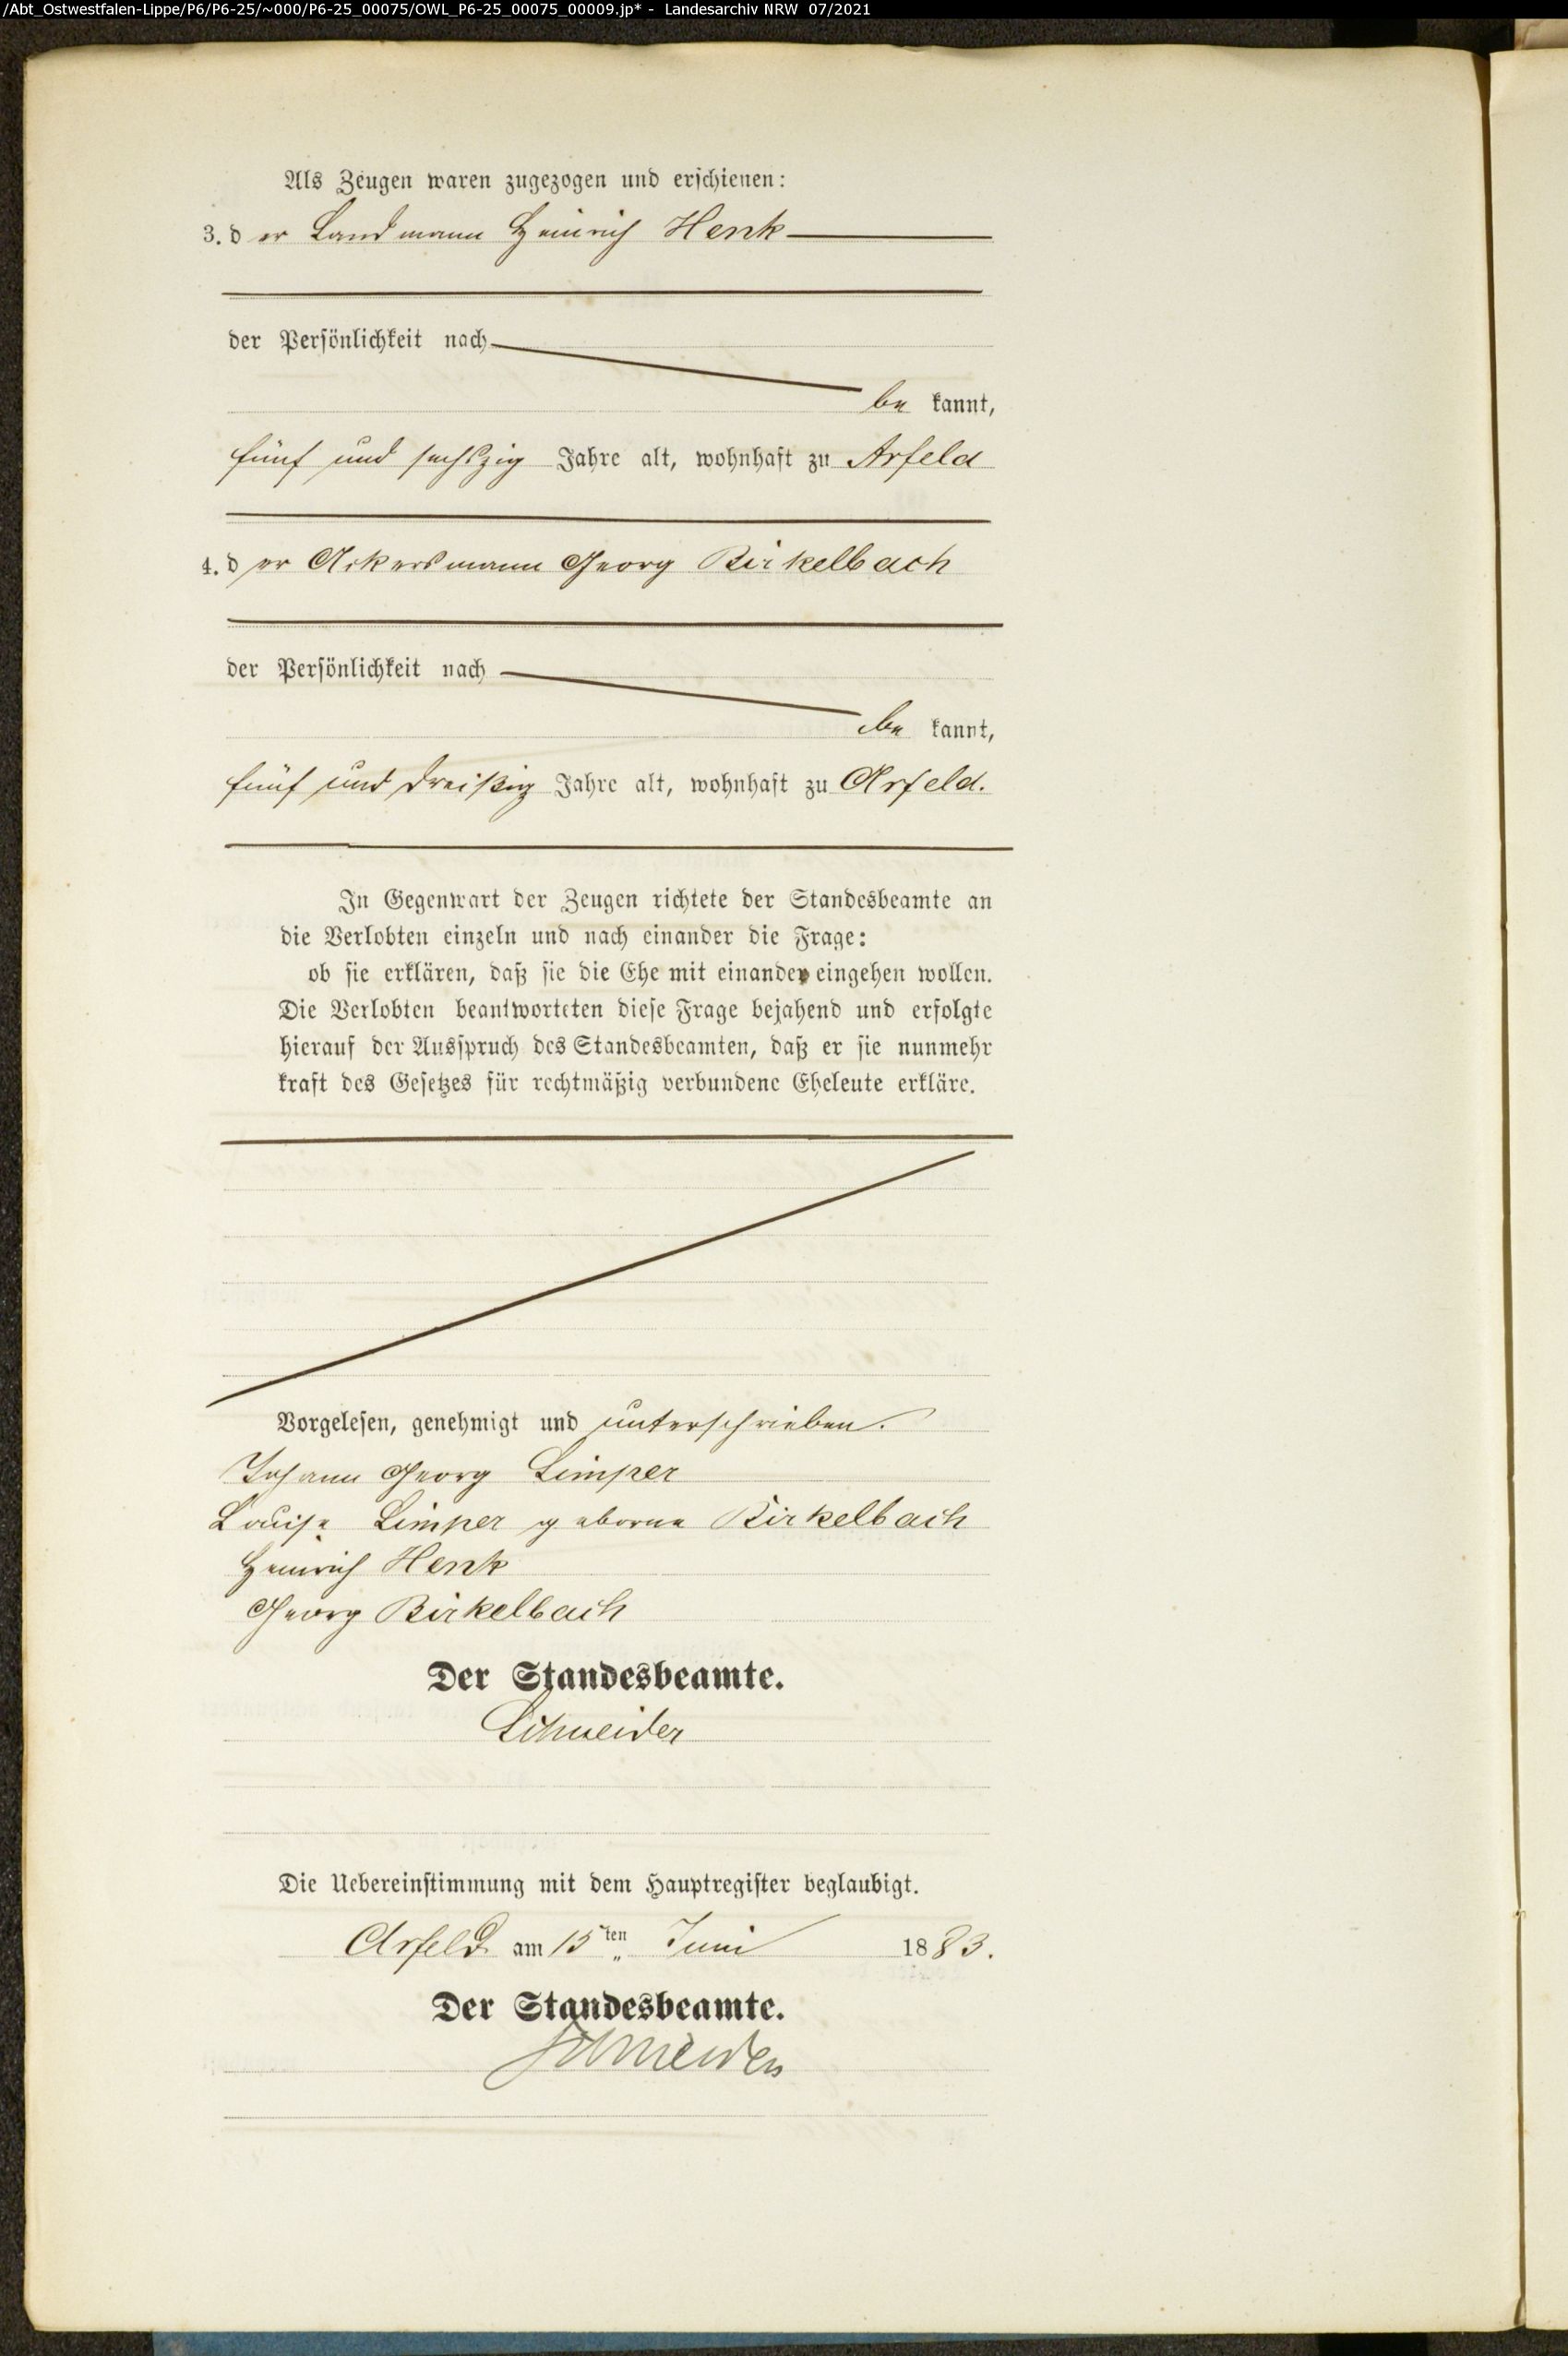 /Abt_Ostwestfalen-Lippe/P6/P6-25/~000/P6-25_00075/OWL_P6-25_00075_00009.jp* - Landesarchiv NRW 07/2021
Als Zeugen waren zugezogen und erschienen:
3. der Landmann Heinrich Henk
der Persönlichkeit nach
be kannt,
fünf und sechszig Jahre alt, wohnhaft zu Arfeld
4. der Ackersmann Georg Birkelbach
der Persönlichkeit nach
be kannt,
fünf und dreißig Jahre alt, wohnhaft zu Arfeld.
In Gegenwart der Zeugen richtete der Standesbeamte an
die Verlobten einzeln und nach einander die Frage:
ob sie erklären, daß sie die Ehe mit einander eingehen wollen.
Die Verlobten beantworteten diese Frage bejahend und erfolgte
hierauf der Ausspruch des Standesbeamten, daß er sie nunmehr
kraft des Gesetzes für rechtmäßig verbundene Eheleute erkläre.
Vorgelesen, genehmigt und unterschrieben.
Johann Georg Limper
Louise Limper geborne Birkelbach
Heinrich Henk
Georg Birkelbach
Der Standesbeamte.
Schneider
Die Uebereinstimmung mit dem Hauptregister beglaubigt.
Arfeld am 15ten Juni 1883.
Der Standesbeamte.
Schneider